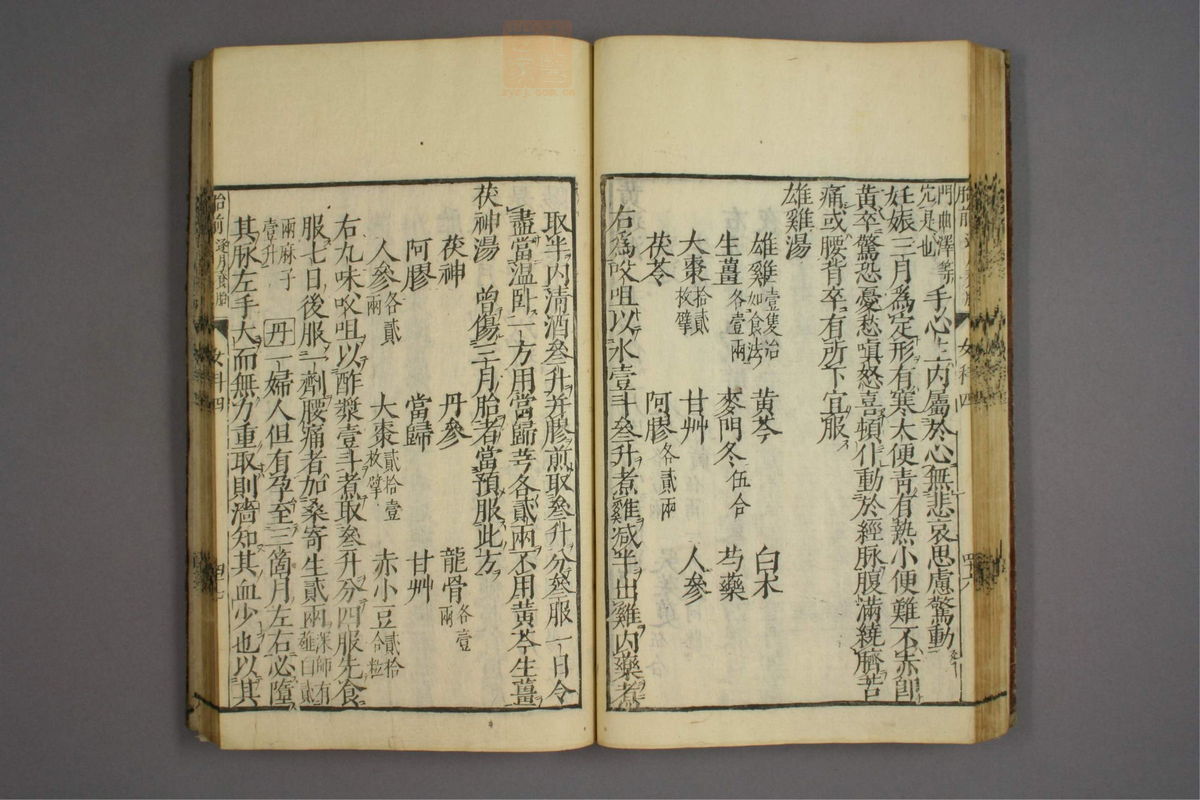 門曲澤等
穴是也
手心主内屬於心無悲哀思慮驚動
妊娠三月爲定形有寒大便青有熱小便難不赤卽
黃卒驚恐憂愁嗔怒喜頓仆動於經脉腹滿繞臍苦
痛或腰背卒有所下宜服
雄雞湯
雄雞壹隻治如食法 黃芩 白朮
生薑各壹兩 麥門冬伍合 芍藥
大棗拾貳枚擘 甘艸 人參
茯苓 阿膠各貳兩
右爲㕮咀以水壹斗叄升煮雞减半出雞内藥煮
取半内清酒叄升并膠煎取叄升分叄服一日令
盡當温卧一方用當歸芎各貳兩不用黃芩生薑
茯神湯 曾傷三月胎者當預服此方
茯神 丹參 龍骨各壹兩
阿膠 當歸 甘艸
人參各貳兩 大棗貳拾壹枚擘 赤小豆貳拾壹粒
右九味㕮咀以酢漿壹斗煮取叄升分四服先食
服七日後服一劑腰痛者加桑寄生貳兩深師有薤白貳
兩麻子壹升
丹 婦人但有孕至三箇月左右必墮
其脉左手大而無力重取則濇知其血少也以其
胎前 逐月養胎 女科四 四七